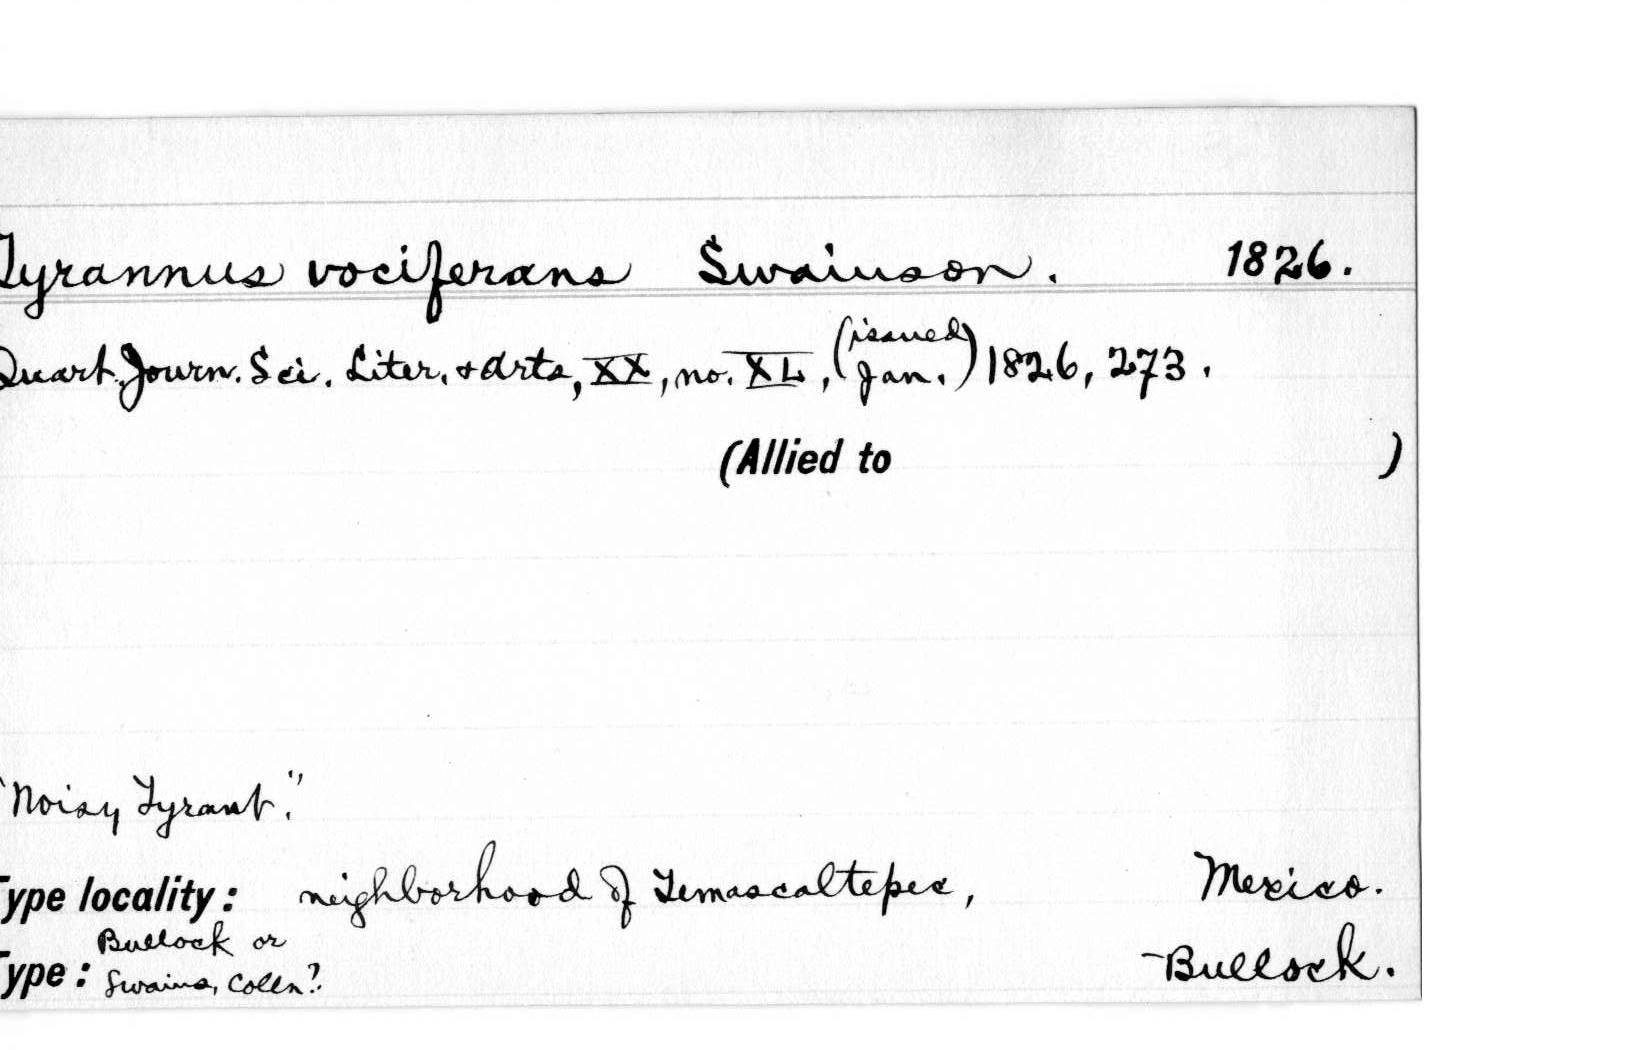 Tyrannus vociferans Swainson. 1826.
Quart. Journ. Sci. Liter. & Arts, XX, no. XL, (issued Jan.) 1826, 273.
(Allied to )
"Noisy Tyrant."
Type locality: neighborhood of Temascaltepec, Mexico.
Type: Bullock or Swains, Colln? —Bullock.